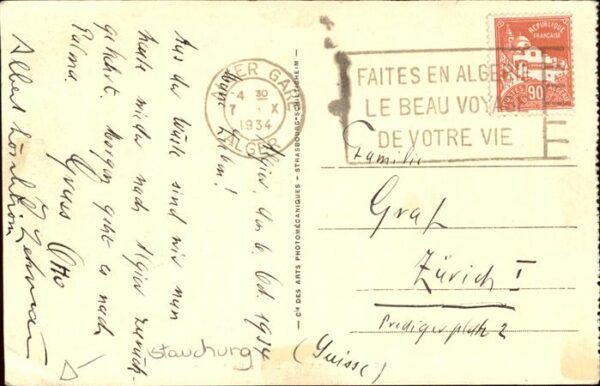 Algier, den 6. Oct. 1934
Meine Lieben!
Aus der Wüste sind wir nun
heute wieder nach Algier zurück-
gekehrt. Morgen geht es nach
Palma.
Gruss Otto
Albert
Stauchung
ALGER GARE
4 30
7 X
1934
ALGER
FAITES EN ALGERIE
LE BEAU VOYAGE
DE VOTRE VIE
REPUBLIQUE
FRANÇAISE
POSTES
90
Cie DES ARTS PHOTOMÉCANIQUES - STRASBOURG-SCHILTIGHEIM -
Familie
Graf
Zürich I
Predigerplatz 2
(Suisse)